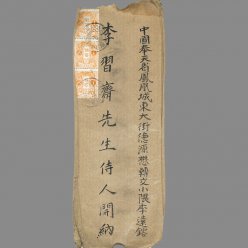 中國奉天省鳳凰城東大街德源懋轉交小隈李蓬鎔
李習齋先生侍人開納